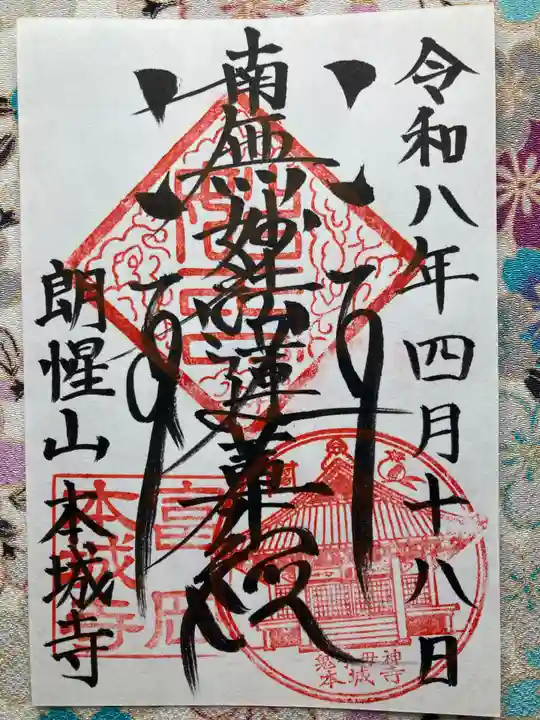 令和八年四月十八日
南無妙法蓮華経
朗惺山 本城寺
富岡
本城寺
鬼子母神
本城寺